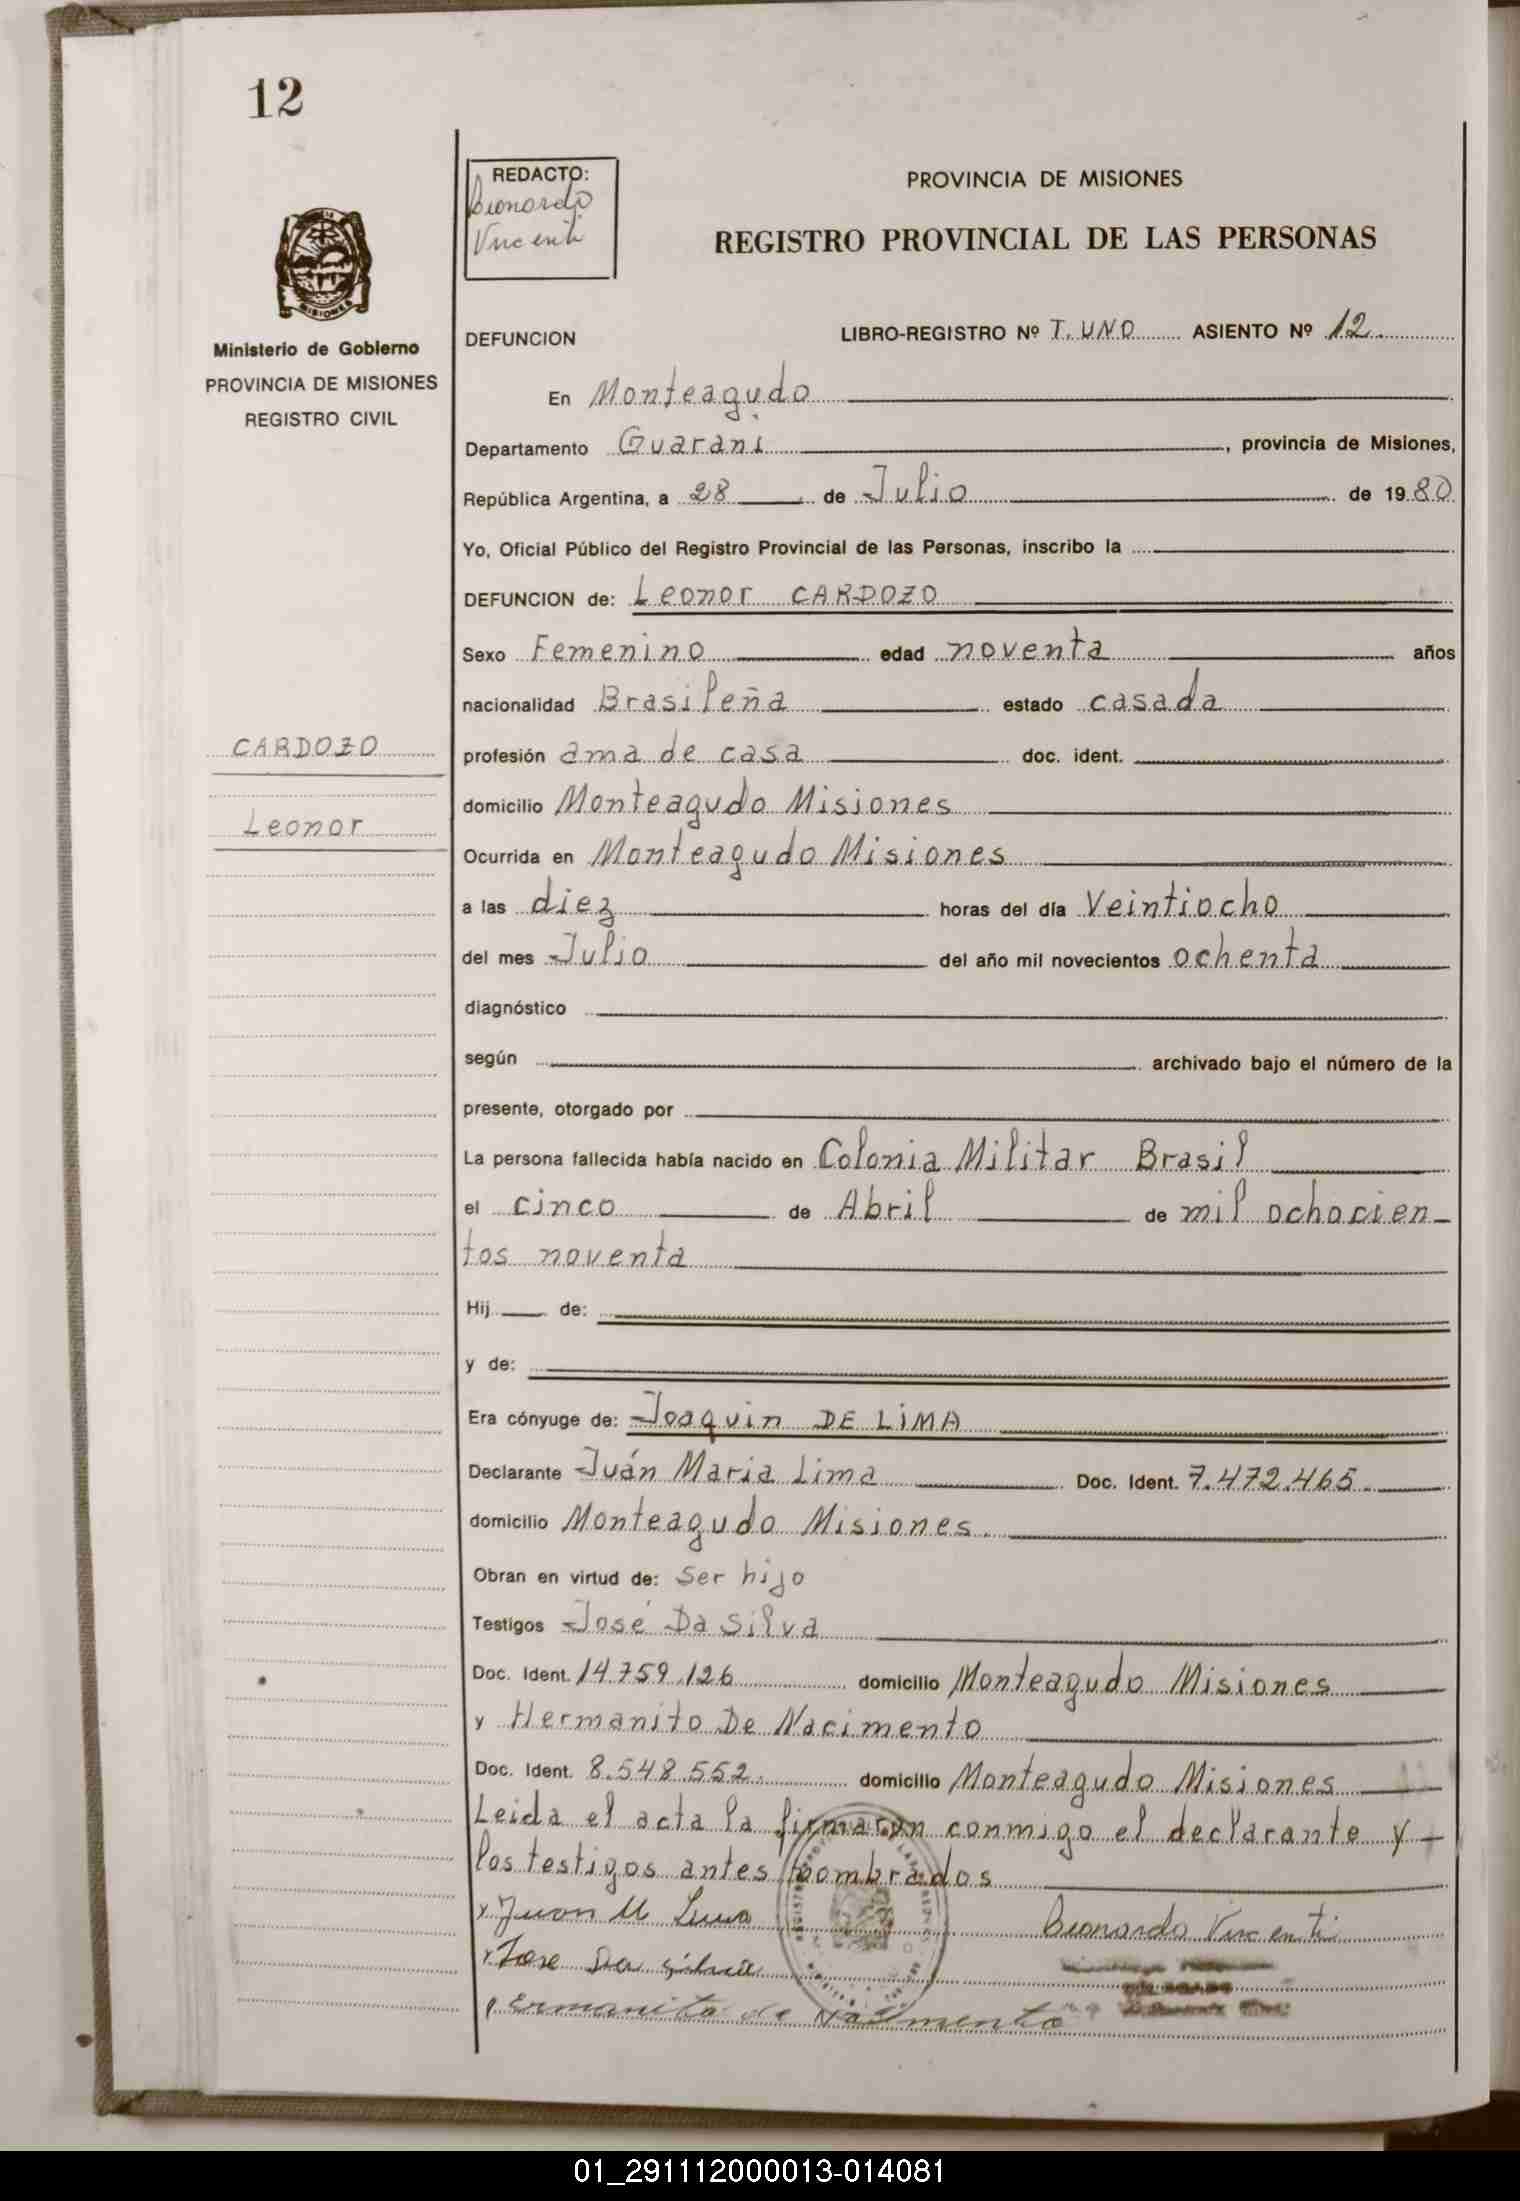 12
REDACTO:
PROVINCIA DE MISIONES
REGISTRO PROVINCIAL DE LAS PERSONAS
MISIONES
Ministerio de Gobierno
PROVINCIA DE MISIONES
REGISTRO CIVIL
DEFUNCION LIBRO-REGISTRO Nº T. UNO ASIENTO Nº 12.
En Monteagudo
Departamento Guarani, provincia de Misiones,
República Argentina, a 28 de Julio de 1980
Yo, Oficial Público del Registro Provincial de las Personas, inscribo la
DEFUNCION de: Leonor CARDOZO
Sexo Femenino edad noventa años
nacionalidad Brasileña estado casada
CARDOZO
profesión ama de casa doc. ident.
domicilio Monteagudo Misiones
Leonor
Ocurrida en Monteagudo Misiones
a las diez horas del día Veintiocho
del mes Julio del año mil novecientos ochenta
diagnóstico
según archivado bajo el número de la
presente, otorgado por
La persona fallecida había nacido en Colonia Militar Brasil
el cinco de Abril de mil ochocien-
tos noventa
Hij de:
y de:
Era cónyuge de: Joaquin DE LiMA
Declarante Juán Maria Lima Doc. Ident. 7.472.465.
domicilio Monteagudo Misiones.
Obran en virtud de: Ser hijo
Testigos José Da Silva
Doc. Ident. 14.759.126 domicilio Monteagudo Misiones
y Hermanito De Nacimento
Doc. Ident. 8.548.552. domicilio Monteagudo Misiones
Leida el acta la firmaron conmigo el declarante y
los testigos antes nombrados
Juan M Lima
Jose Da Silva
Ermanito de Nacimento
01_291112000013-014081